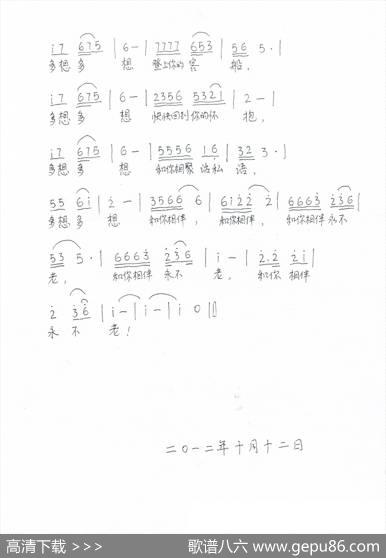 i7 675 | 6 - | 7777 653 | 56 5 · |
多想多 想 登上你的客 船,
i7 675 | 6 - | 2356 5321 | 2 - |
多想多 想 快快回到你的怀 抱,
i7 675 | 6 - | 5556 16 | 32 3 · |
多想多 想 和你相聚话私 语,
55 6i | 2 - | 3566 6 | 6i22 2 | 6663 236 |
多想多 想 和你相伴, 和你相伴, 和你相伴永不
53 5 · | 6663 236 | i - | 2·2 2i |
老, 和你相伴 永不 老, 和你 相伴
2 36 | i - | i - | i 0 ||
永 不 老!
二〇一二年十月十二日
高清下载 >>>
歌谱八六 www.gepu86.com